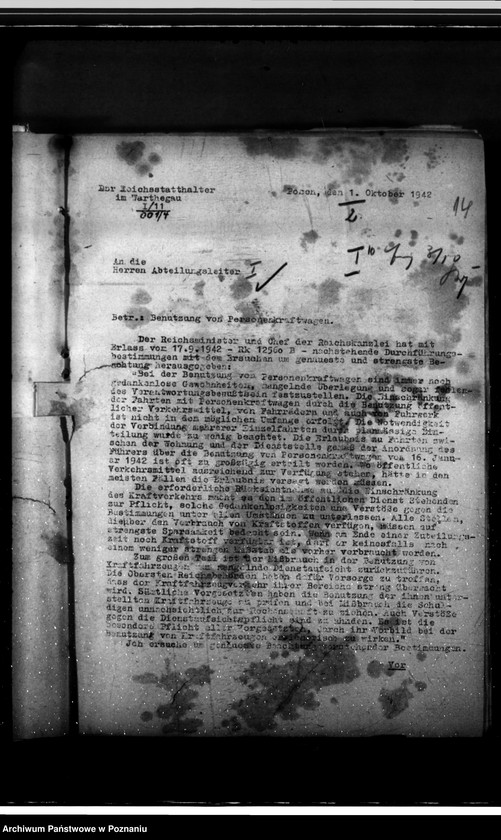 Der Reichsstatthalter
im Warthegau
I/11
Posen, den 1. Oktober 1942
2
14
An die
Herren Abteilungsleiter I
Betr.: Benutzung von Personenkraftwagen.
Der Reichsminister und Chef der Reichskanzlei hat mit
Erlass vom 17.9.1942 - RK 12560 B - nachstehende Durchführungs-
bestimmungen mit dem Ersuchen um genaueste und strengste Be-
achtung herausgegeben:
"Bei der Benutzung von Personenkraftwagen sind immer noch
gedankenlose Gewohnheiten, mangelnde Überlegung und sogar fehlen-
des Verantwortungsbewußtsein festzustellen. Die Einschränkung
der Fahrten mit Personenkraftwagen durch die Benutzung öffent-
licher Verkehrsmittel, von Fahrrädern und auch von Fuhrwerk
ist nicht in dem möglichen Umfange erfolgt. Die Notwendigkeit
der Verbindung mehrerer Einzelfahrten durch planmässige Ein-
teilung wurde zu wenig beachtet. Die Erlaubnis zu Fahrten zwi-
schen der Wohnung und der Dienststelle gemäß der Anordnung des
Führers über die Benutzung von Personenkraftwagen vom 16. Janu-
ar 1942 ist oft zu großzügig erteilt worden. Wo öffentliche
Verkehrsmittel ausreichend zur Verfügung stehen, hätte in den
meisten Fällen die Erlaubnis versagt werden müssen.
Die erforderliche Rücksichtnahme auf die Einschränkung
des Kraftverkehrs macht es den im öffentlichen Dienst Stehenden
zur Pflicht, solche Gedankenlosigkeiten und Verstöße gegen die
Bestimmungen unter allen Umständen zu unterlassen. Alle Stellen,
die über den Verbrauch von Kraftstoffen verfügen, müssen auf
strengste Sparsamkeit bedacht sein. Wenn am Ende einer Zuteilungs-
zeit noch Kraftstoff verfügbar ist, darf er keinesfalls nach
einem weniger strengen Maßstab als vorher verbraucht werden.
Zum großen Teil ist der Mißbrauch in der Benutzung von
Kraftfahrzeugen auf mangelnde Dienstaufsicht zurückzuführen.
Die Obersten Reichsbehörden haben dafür Vorsorge zu treffen,
dass der Kraftfahrzeugverkehr ihrer Bereiche streng überwacht
wird. Sämtliche Vorgesetzten haben die Benutzung der ihnen unter-
stellten Kraftfahrzeuge zu prüfen und bei Mißbrauch die Schul-
digen unnachsichtlich zur Rechenschaft zu ziehen. Auch Verstöße
gegen die Dienstaufsichtspflicht sind zu ahnden. Es ist die
besondere Pflicht aller Vorgesetzten, durch ihr Vorbild bei der
Benutzung von Kraftfahrzeugen erzieherisch zu wirken."
Ich ersuche um genaueste Beachtung vorstehender Bestimmungen.
Vor
Archiwum Państwowe w Poznaniu